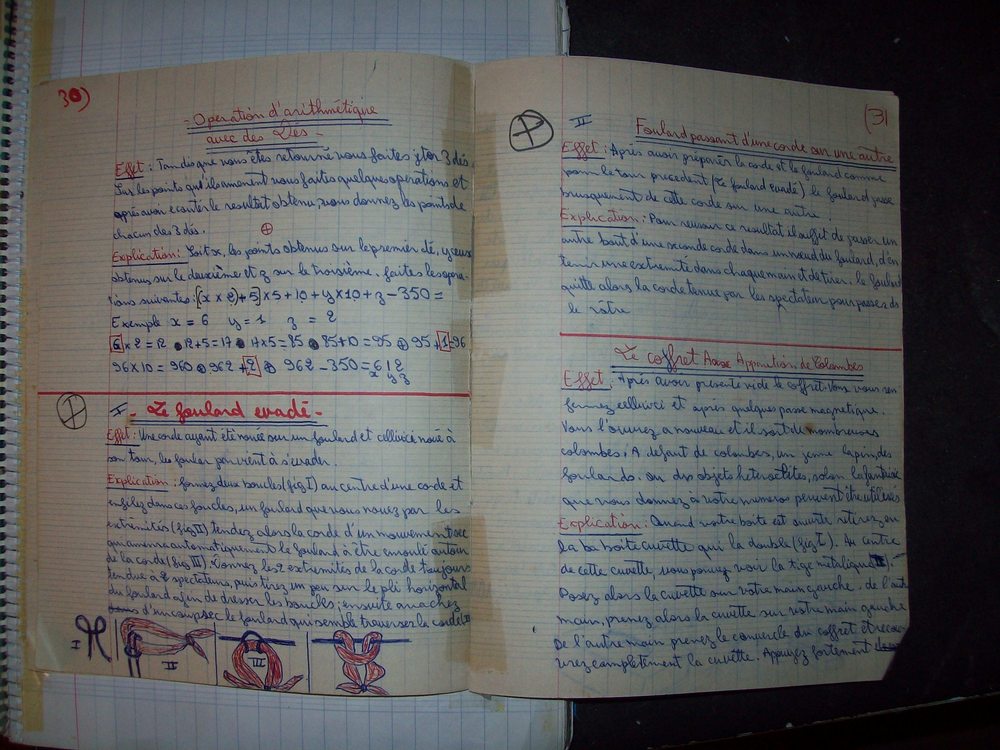 30)
- Operation d'arithmétique
avec des Dés -
Effet : Tandis que vous êtes retourné vous faites jeter 3 dés.
Sur les points qu'ils amènent vous faites quelques operations et
après avoir ecouter le resultat obtenu, vous donnez les points de
chacun des 3 dés.
Explication : Soit x, les points obtenus sur le premier dé, y ceux
obtenus sur le deuxième et z sur le troisième. faites les opera-
tions suivantes : [(x x 2)+5] x 5 + 10 + y x 10 + z - 350 =
Exemple x = 6 y = 1 z = 2
6 x 2 = 12 12+5 = 17 17x5 = 85 85+10 = 95 95+1=96
96x10 = 960 962+2 962-350 = 612
x y z
I - Le foulard evadé -
Effet : Une corde ayant été nouée sur un foulard et celluici noué à
son tour, les foular parvient à s'evader.
Explication : formez deux boucles (fig I) au centre d'une corde et
enfilez dans ces boucles, un foulard que vous nouez par les
extrémités (fig II) tendez alors la corde d'un mouvement sec
qui amenera automatiquement le foulard à être enroulé autour
de la corde (fig III). Donnez les 2 extremités de la corde toujours
tendue à 2 spectateurs, puis tirez un peu sur le pli horizontal
du foulard afin de dresser les boucles ; ensuite arrachez
d'un coup sec le foulard qui semble traverser la corde
I
II
III
(31
II
Foulard passant d'une corde sur une autre
Effet : Après avoir préparer la corde et le foulard comme
pour le tour precedent (Le foulard evadé) le foulard passe
brusquement de cette corde sur une autre.
Explication : Pour reussir ce resultat il suffit de passer un
autre bout d'une seconde corde dans un nœud du foulard, d'en
tenir une extremité dans chaque main et de tirer, le foulard
quitte alors la corde tenue par les spectateur pour passer
le vôtre
Le coffret Apparition de Colombes
Effet : Après avoir presenté vide le coffret. Vous vous ren
fermez celluici et après quelques passe magnetique.
Vous l'ouvrez a nouveau et il sort de nombreuses
colombes. A defaut de colombes, un jeune lapin, des
foulards. ou des objets heteroclites, selon la fantaisie
que vous donnez à votre numero peuvent être utilisés
Explication : Quand votre boite est ouverte retirez en
la boite cuvette qui la double (fig I). Au centre
de cette cuvette, vous pouvez voir la tige metalique
Posez alors la cuvette sur votre main gauche. de l'autre
main, prenez alors la cuvette sur votre main gauche
De l'autre main prenez le couvercle du coffret et recou-
vrez completement la cuvette. Appuyez fortement